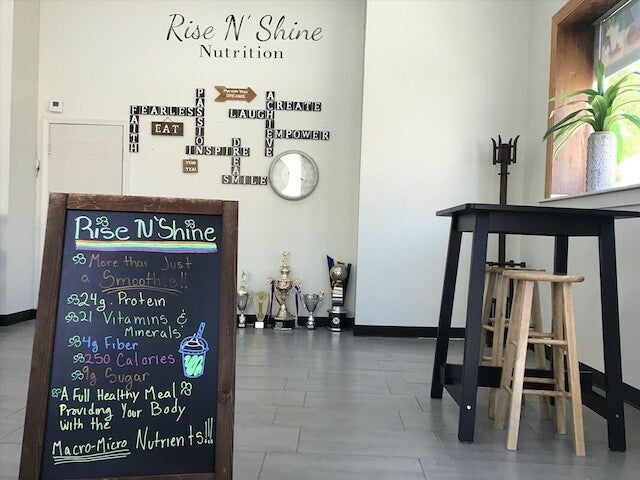 Rise N' Shine
Nutrition
Pursue Your
DREAMS
FEARLESS
FAITH
PASSION
ACHIEVE
CREATE
LAUGH
EMPOWER
INSPIRE
DREAM
SMILE
EAT
Rise N' Shine
More than Just
a Smoothie!!
24g. Protein
21 Vitamins &
Minerals
4g Fiber
250 Calories
9g Sugar
A Full Healthy Meal
Providing Your Body
with the
Macro-Micro Nutrients!!!